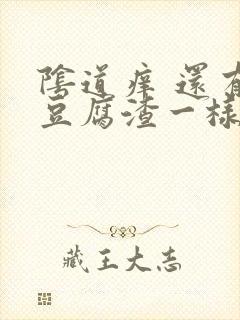 陰道癢 還有
豆腐渣一樣
藏王大志